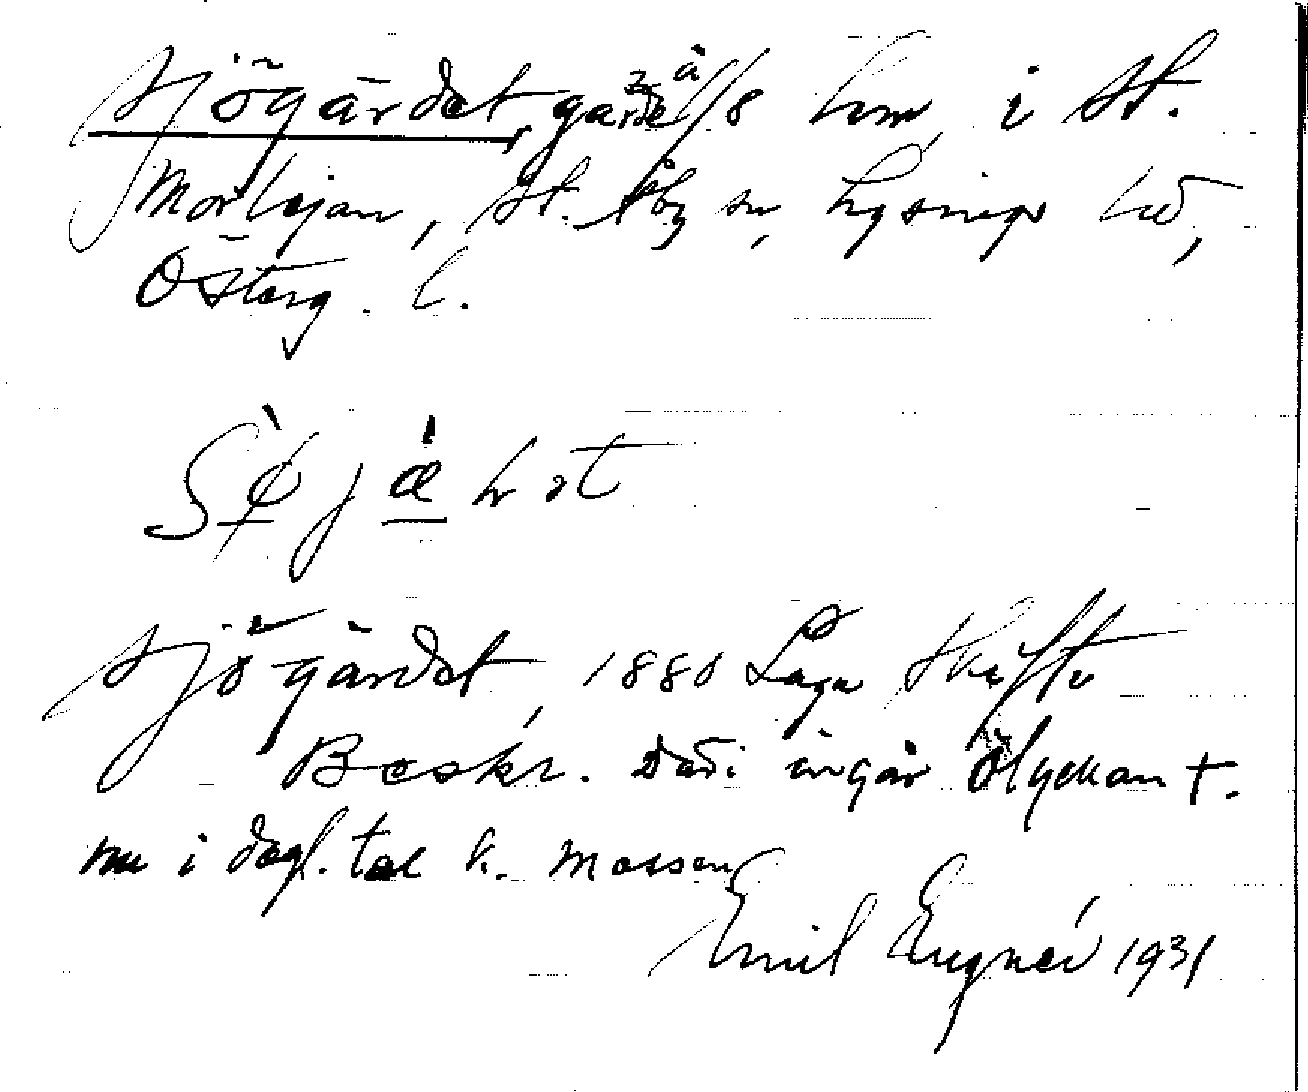 Sjögärdet, gärde å 2/8 hmn i St.
Morlejan, St. Åby sn, Lysings hd,
Österg. l.
Sjögärdet, 1880 Laga Skifte
Beskr. Däri ingår Ölyckan t.
nu i dagl. tal k. Mossen
Emil Eugnér 1931